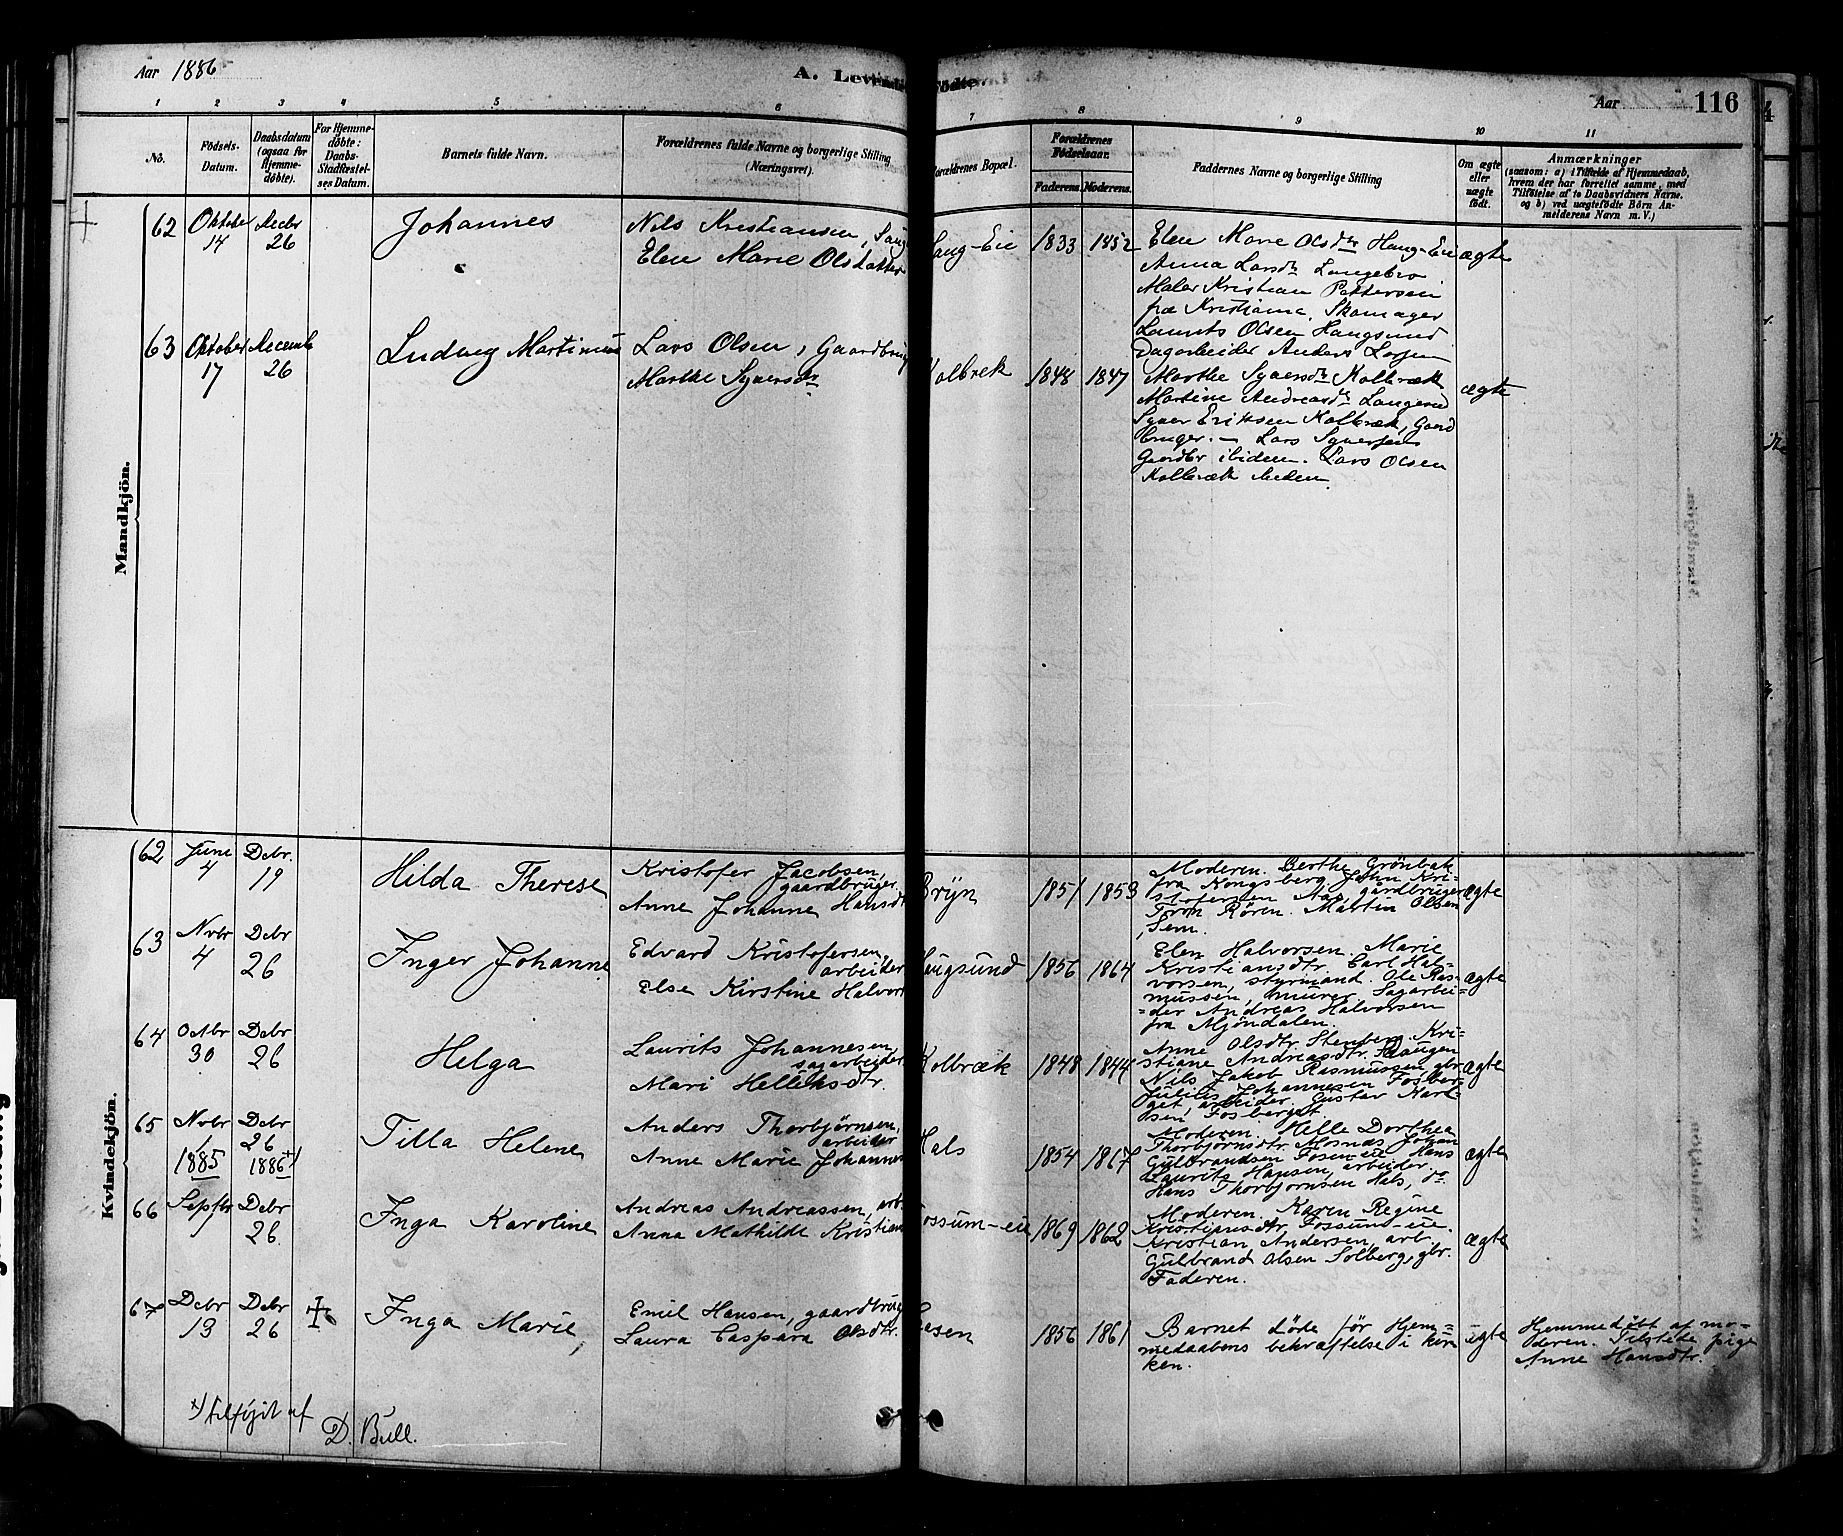 Aar 1886
A. Levende Fødte
Aar 116
1 2 3 4 5 6 7 8 9 10 11
No.
Födsels-Datum.
Daabsdatum (ogsaa for Hjemme-döbte).
For Hjemme-döbte: Daabs-Stadfæstel-ses Datum.
Barnets fulde Navn.
Forældrenes fulde Navne og borgerlige Stilling (Næringsvei).
Forældrenes Bopæl.
Forældrenes Födselsaar.
Faderens. Moderens.
Faddernes Navne og borgerlige Stilling
Om ægte eller uægte født.
Anmærkninger
(saasom: a) i Tilfælde af Hjemmedaab, hvem der har forrettet samme, med Tilføielse af to Daabsvidners Navne, og b) ved uægtefödte Börn An-melderens Navn m. V.)
Mandkjön.
62 Oktober 14 Decbr 26
Johannes
Nils Kristiansen,
Elen Marie Olsdatter
Haug-Eie 1833 1852
Elen Marie Olsdtr Haug-Eie ægte
Anna Larsdtr Langebro
Maler Kristian Pettersen
fra Kristiania, Skomager
Laurits Olsen Haugsund
Dagarbeider Anders Larsen
63 Oktober 17 Decemb 26
Ludvig Martinius
Lars Olsen, Gaardbrug
Marthe Syversdr
Kolbrek 1848 1847
Marthe Syversdtr Kolbræk ægte
Martine Andreasdr Langerud
Syver Eriksen Kolbræk, Gaard
bruger. – Lars Syversen
Gaardbr ibidem. Lars Olsen
Kolbræk
Kvindekjön.
62 Juni 4 Debr. 19
Hilda Therese
Kristofer Jacobsen, gaardbruger.
Anne Johanne Hansdt
Bryn 1851 1853
Moderen. Berthe Grönbæk
fra Kongsberg John Kri-
stofersen Aas, gårdbruger ægte
Tron Røren. Martin Olsen
Sem.
63 Nvbr 4 Debr 26
Inger Johanne
Edvard Kristofersen, arbeider
Else Kirstine Halvor
Haugsund 1856 1864
Elen Halvorsen. Marie
Kristiansdtr. Carl Hal-
vorsen, styrmand. Ole Ras-
mussen, murer. Sagarbei- ægte
der Andreas Halvorsen
fra Mjöndalen.
64 Octbr 30 Debr 26
Helga
Laurits Johannesen, sagarbeider
Mari Helleksdtr.
Kolbræk 1848 1844
Anne Olsdtr Stenberg. Kri-
stiane Andreasdtr Haugen
Nils Jakob Rasmussen gbr ægte
Julius Johannesen Fosber-
get, arbeider. Gustav Karl-
sen, Fosberget
65 Nvbr 1 1885 Debr 26 1886 +)
Tilla Helene
Anders Thorbjørnsen, arbeider
Anne Marie Johannes
Hals 1854 1867
Moderen. Helle Dorthea
Thorbjørnsdtr Mosnæs Johan
Gulbrandsen Fosen-eie Hans ægte
Laurits Hansen, arbeider.
Hans Thorbjørnsen Hals, do
66 Septbr 1 Debr 26
Inga Karoline
Andreas Andreassen, arb.
Anna Mathilde Kristian
Fossum-eie 1869 1862
Moderen. Karen Regine
Kristiansdtr Fossund-eie.
Kristian Andersen, arb. ægte
Gulbrand Olsen Solberg, gbr.
Faderen.
67 Debr 13 Debr 26
Inga Marie,
Emil Hansen, gaardbrug
Laura Caspara Olsdtr.
1856 1861
Barnet döde för Hjem- ægte
medaabens bekræftelse i kir-
ken.
Hjemmedöbt af mo-
deren. Tilstede pige
Anne Hansdtr.
+) tilføjet af
D. Bull.